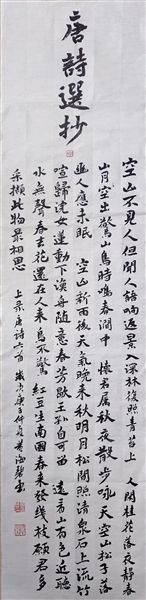 唐詩選抄
空山不見人但聞人語响返景入深林復照青苔上 人閒桂花落夜靜春
山月空出驚山鳥時鳴春澗中 懷君屬秋夜散步咏天空山松子落
幽人應未眠 空山新雨後天氣晚來秋明月松間照清泉石上流竹
喧歸浣女蓮動下漁舟随意春芳歇王孫自可留 遠看山有色近聽
水無聲春去花還在人來鳥不驚 紅豆生南國春來發幾枝願君多
采擷此物最相思 上录唐诗六首 歲次庚子仲夏